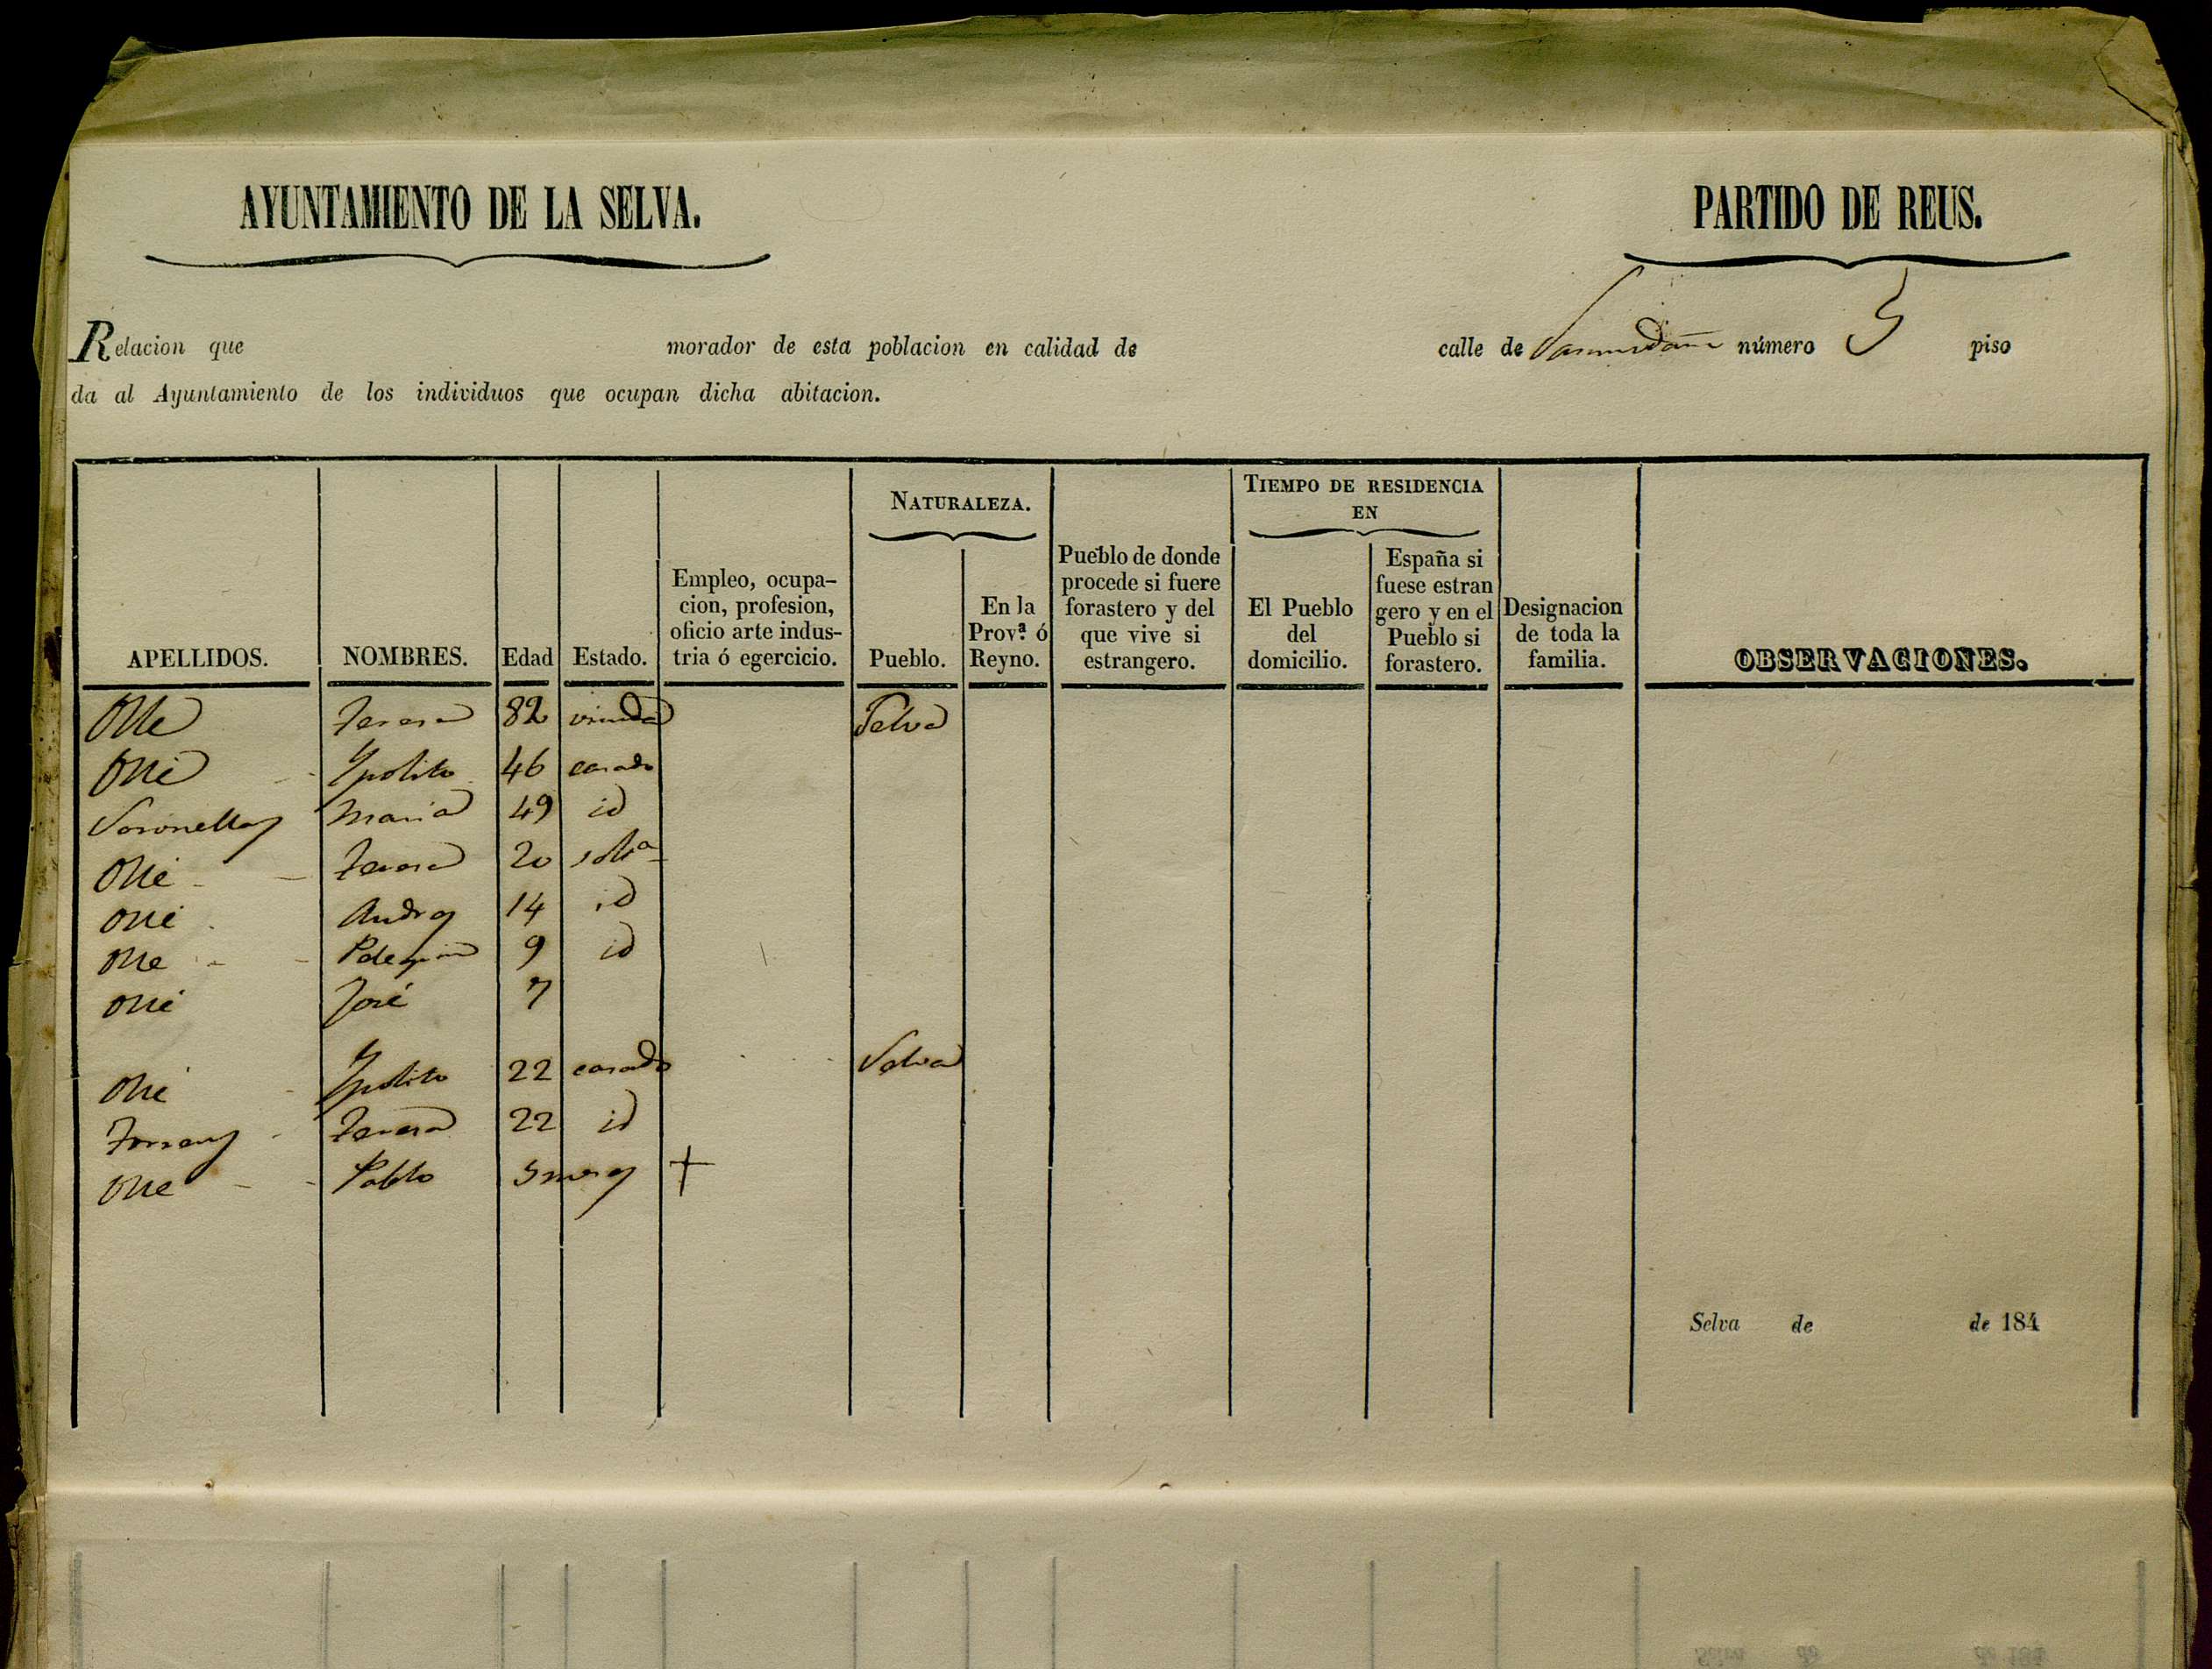 AYUNTAMIENTO DE LA SELVA.
PARTIDO DE REUS.
Relacion que morador de esta poblacion en calidad de calle de número 5 piso
da al Ayuntamiento de los individuos que ocupan dicha abitacion.
NATURALEZA.
TIEMPO DE RESIDENCIA EN
APELLIDOS.
NOMBRES.
Edad
Estado.
Empleo, ocupa-
cion, profesion,
oficio arte indus-
tria ó egercicio.
Pueblo.
En la
Prov.ª ó
Reyno.
Pueblo de donde
procede si fuere
forastero y del
que vive si
estrangero.
El Pueblo
del
domicilio.
España si
fuese estran
gero y en el
Pueblo si
forastero.
Designacion
de toda la
familia.
OBSERVACIONES.
Olle Teresa 82 viuda Selva
Ollé Ypolito 46 casado
Maria 49 id
Ollé Teresa 20 solt.ª
Ollé Andres 14 id
Olle 9 id
Ollé José 7
Ollé Ypolito 22 casado Selva
Teresa 22 id
Olle Pablo 5 meses +
Selva de de 184